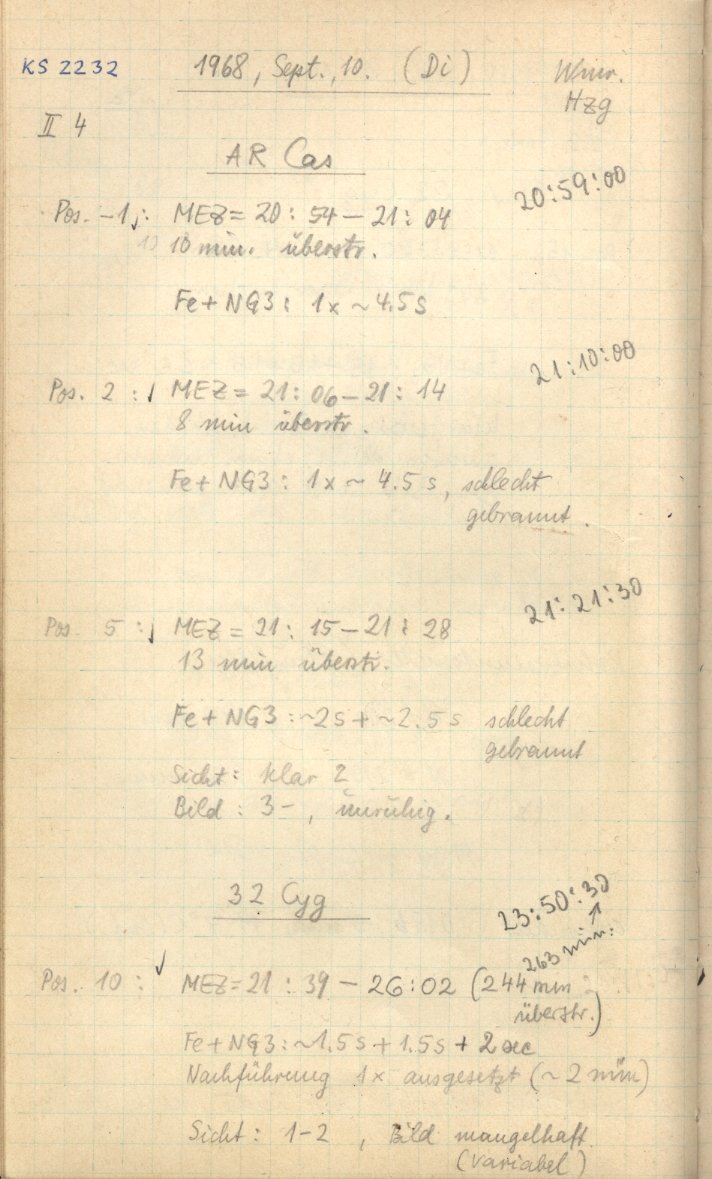 KS 2232
1968, Sept., 10. (Di)
Hzg
II 4
AR Cas
20:59:00
Pos. -1,: MEZ = 20 : 54 – 21 : 04
10 min. überstr.
Fe + NG3 : 1x ~ 4.5 s
21:10:00
Pos. 2 : MEZ = 21 : 06 – 21 : 14
8 min überstr.
Fe + NG3 : 1x ~ 4.5 s, schlecht
gebrannt.
21:21:30
Pos. 5 : MEZ = 21 : 15 – 21 : 28
13 min überstr.
Fe + NG3 : ~2s + ~2.5 s schlecht
gebrannt
Sicht : klar 2
Bild : 3-, unruhig.
32 Cyg
23:50:30
↑
263 min.
Pos. 10 : MEZ = 21 : 39 – 26:02 (244 min
überstr.)
Fe + NG3 : ~1.5s + 1.5s + 2 sec
Nachführung 1x ausgesetzt (~ 2 min)
Sicht : 1-2 , Bild mangelhaft.
(variabel)